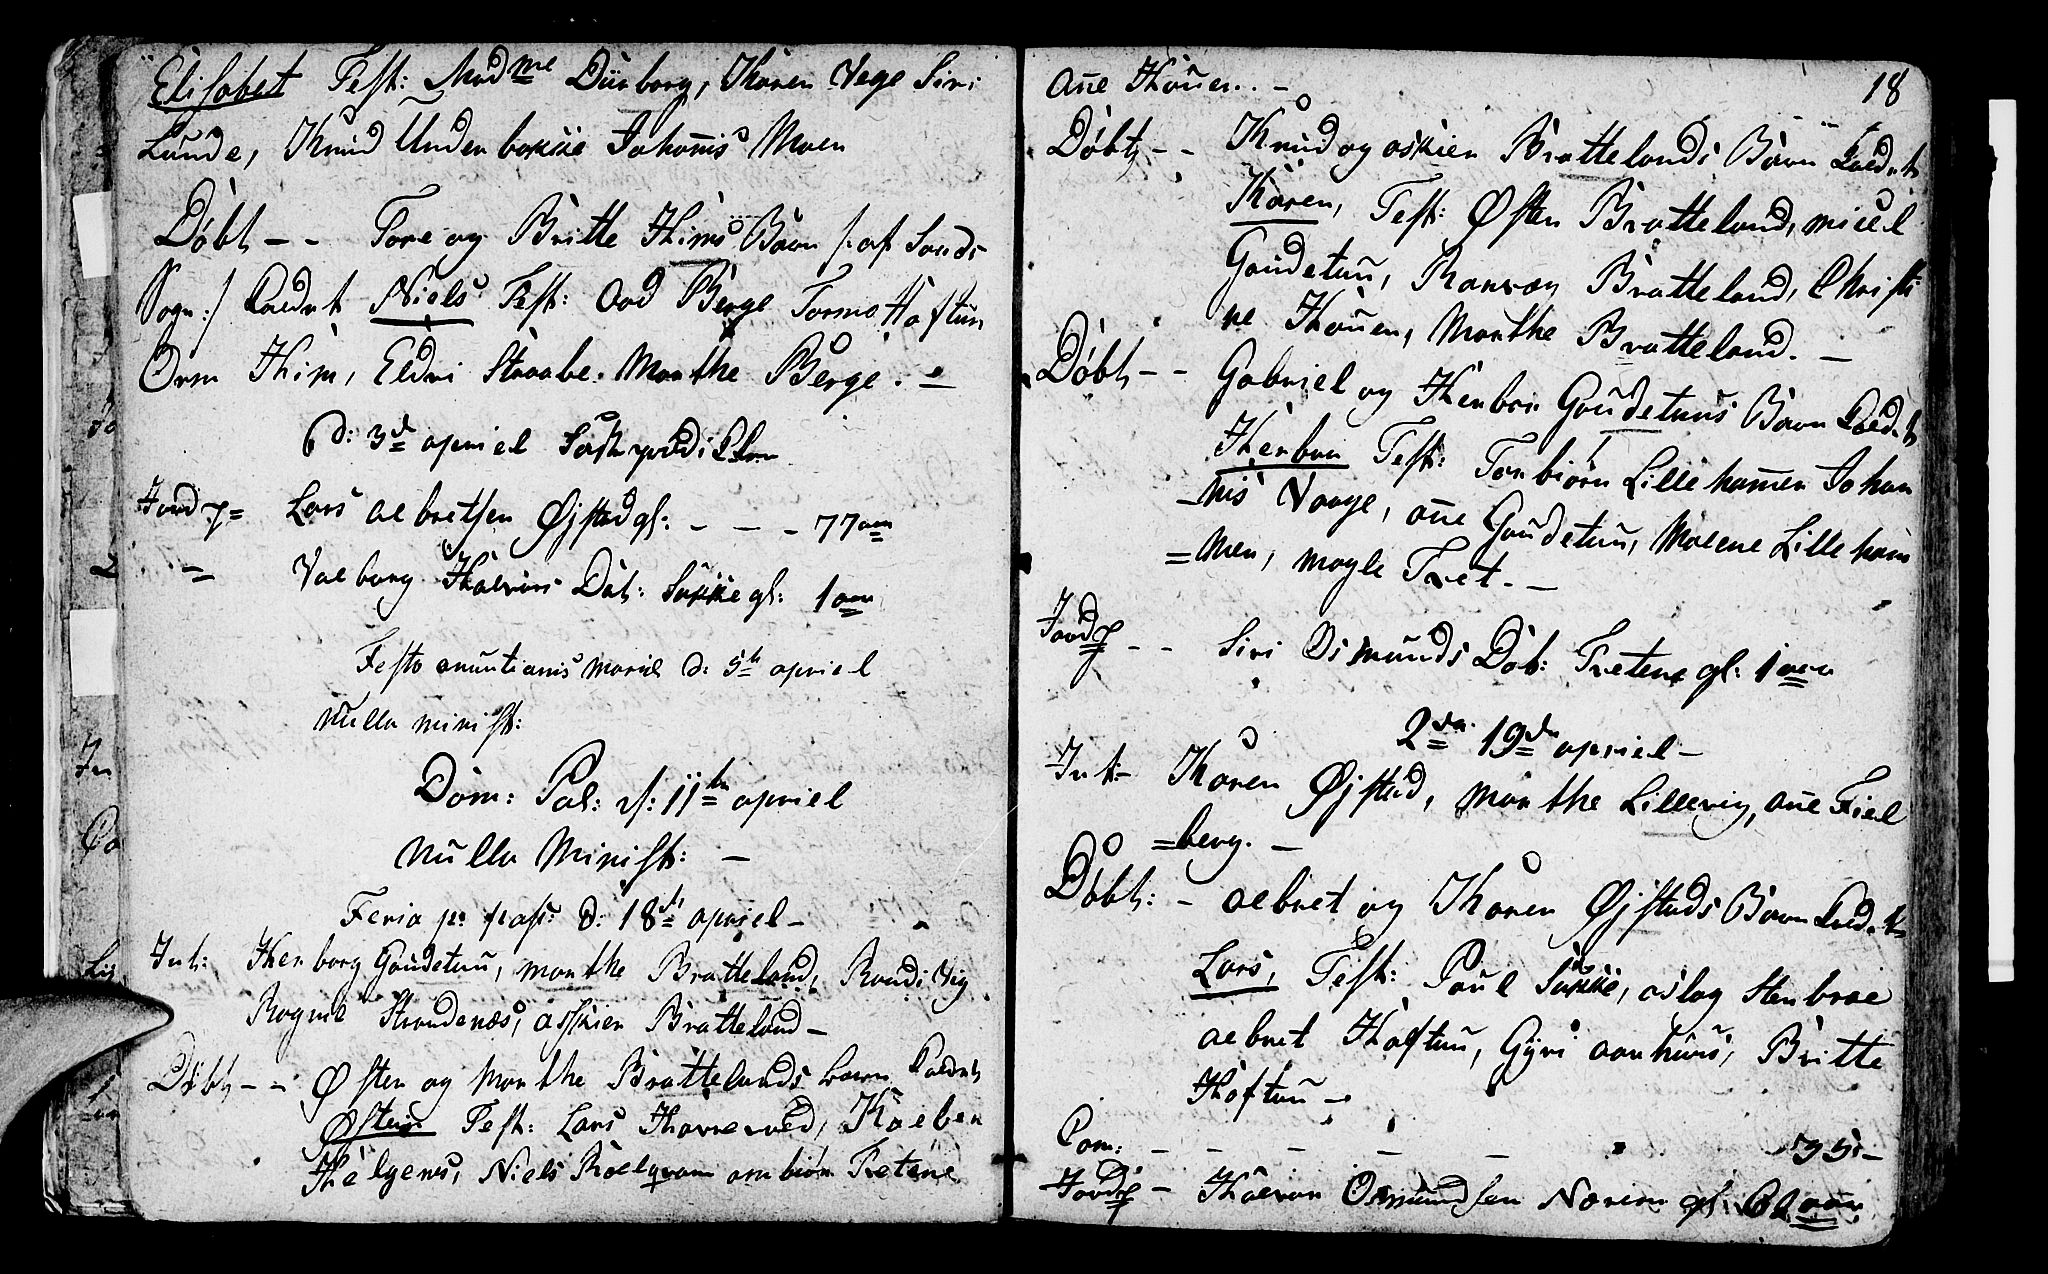 Elisabet Test: Madme Dürborg, Karen Vege Siri
Lunde, Knud Underbakke Johanis Moen
Döbt - - Tore og Britte Hims Barn /: af Sands
Sogn :/ kaldet Niels Test: Aad Berge Tormo Haftun
Orm Him, Eldri Straabe. Marthe Berge. -
d: 3de apriel
Jordf = Lars albretsen Øjstad gl: - - - 77 aar
= Valborg Halvors Dat: Sukke gl: 1 aar
Festo anuntianis mariæ d: 5te apriel
nulla minist:
Dom: Pal: d: 11te apriel
nulla Minist: -
Feria p: pasc: d: 18de apriel -
Int: Herborg Gaudetun, marthe Bratteland, Randi Vig
Ragnil Strandenæs, askier Bratteland -
Döbt - - Østen og Marthe Brattelands barn kaldet
Østen Test: Lars Haverved, Kolben
Helgenes, Niels Roelqvam arnbiön Tretene
18
ane Hauen. -
Döbt - - Knud og askier Brattelands Barn kaldet
Karen, Test: Østen Bratteland, micel
Gaudetun, Ranvæy Bratteland, Christi
ne Hauen, Marthe Bratteland. -
Döbt - - Gabriel og Herbor Gaudetuns Barn kaldet
Herbor Test: Torbiörn Lillehamer Johan
-nis Vaage, ane Gaudetun, Malene Lilleham
=mer, magle Tret. -
Jordf - - Siri Osmunds Dat: Tretene gl: 1 aar
2den 19de apriel -
Int - Karen Øjstad, marthe Lillevig, ane Fiel
=berg. -
Döbt: - albret og Karen Øjstads Barn kaldet
Lars, Test: Paul Sukke, aslag Stenbroe
albret Haftun, Gÿri aarhuus, Britte
Haftun -
Com: - - - - - 35 -
Jordf - Halvor Osmundsen Nærim gl: 62 aar